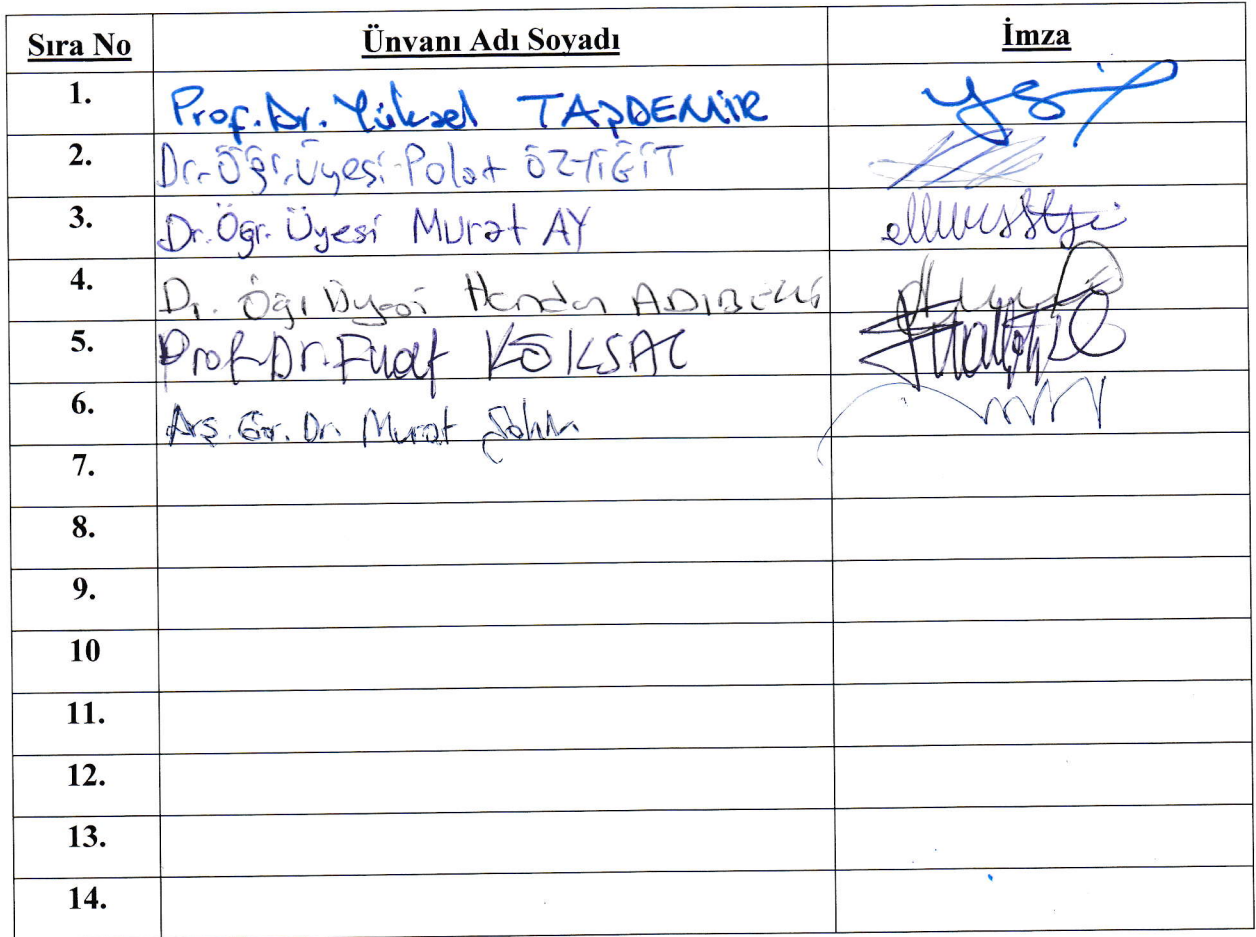 Sıra No Ünvanı Adı Soyadı İmza
1. Prof. Dr. Yüksel TAŞDEMİR
2. Dr. Öğr. Üyesi Polat ÖZYİĞİT
3. Dr. Öğr. Üyesi Murat AY
4. Dr. Öğr Üyesi Handan ADIBELLİ
5. Prof. Dr. Fuat KÖKSAL
6. Arş. Gör. Dr. Murat Şahin
7.
8.
9.
10
11.
12.
13.
14.